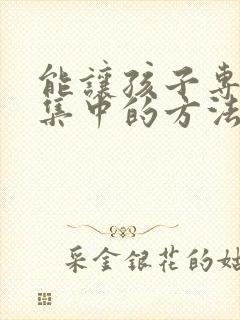 能讓孩子專
集中的方法
采金銀花的姑